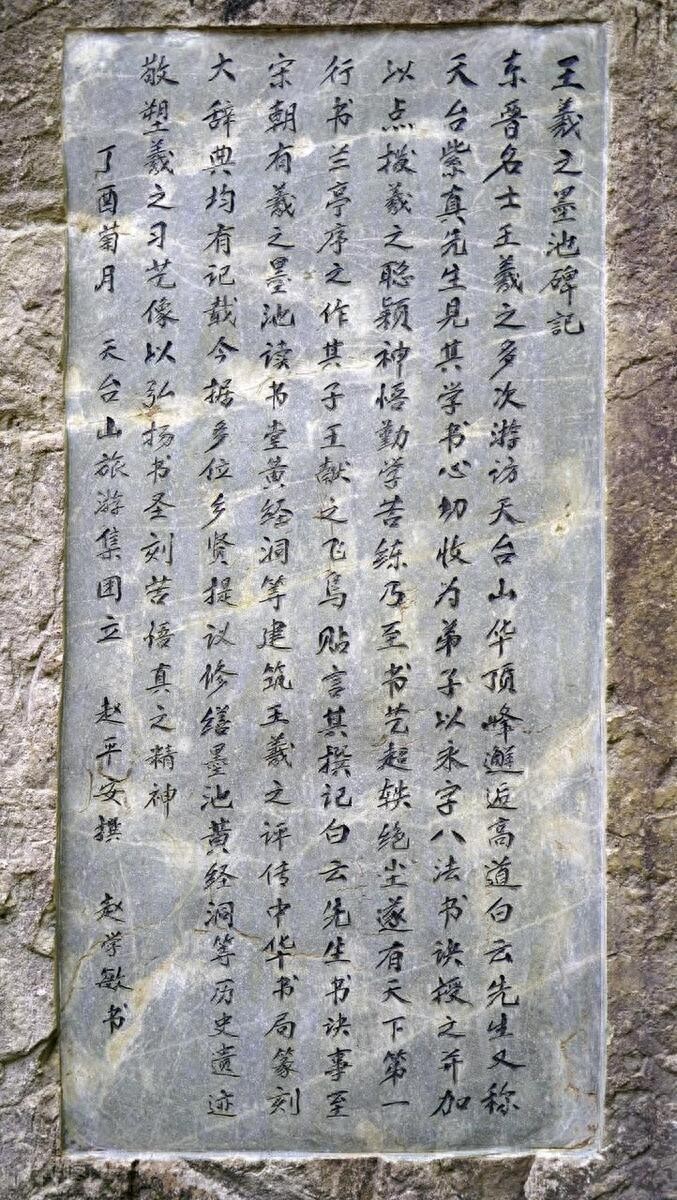 王羲之墨池碑記
东晋名士王羲之多次游访天台山华顶峰邂逅高道白云先生又称
天台紫真先生见其学书心切收为弟子以永字八法书诀授之并加
以点拨羲之聪颖神悟勤学苦练乃至书艺超轶绝尘遂有天下第一
行书兰亭序之作其子王献之飞鸟贴言其撰记白云先生书诀事至
宋朝有羲之墨池读书堂黄经洞等建筑王羲之评传中华书局篆刻
大辞典均有记载今据多位乡贤提议修缮墨池黄经洞等历史遗迹
敬塑羲之习艺像以弘扬书圣刻苦悟真之精神
丁酉菊月 天台山旅游集团立 赵平安撰 赵学敏书